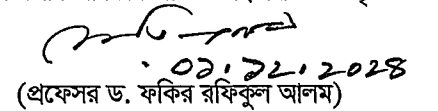 ০১.১২.২০২৪
(প্রফেসর ড. ফকির রফিকুল আলম)